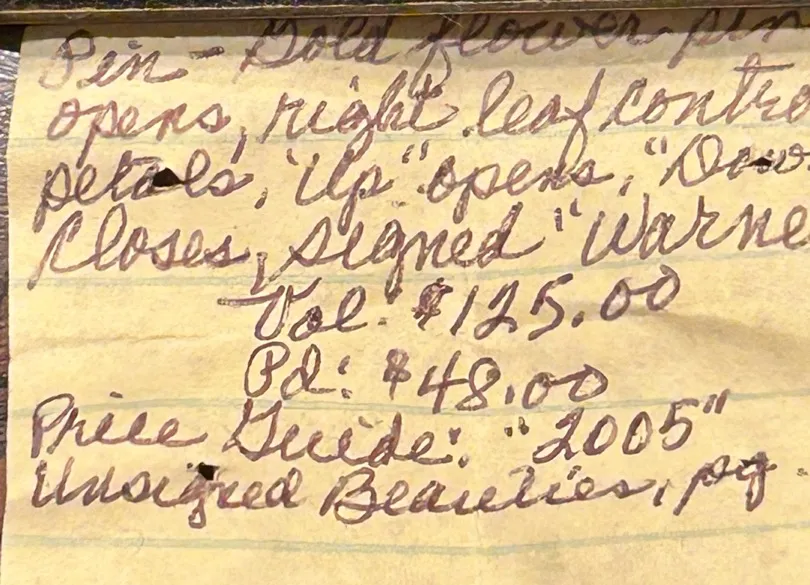 Pin - Gold flower pin
opens, right leaf contro
petals, "Up" opens, "Dow
Closes, signed "Warne
Val: $125.00
Pd: $48.00
Price Guide: "2005"
Unsigned Beauties, pg.